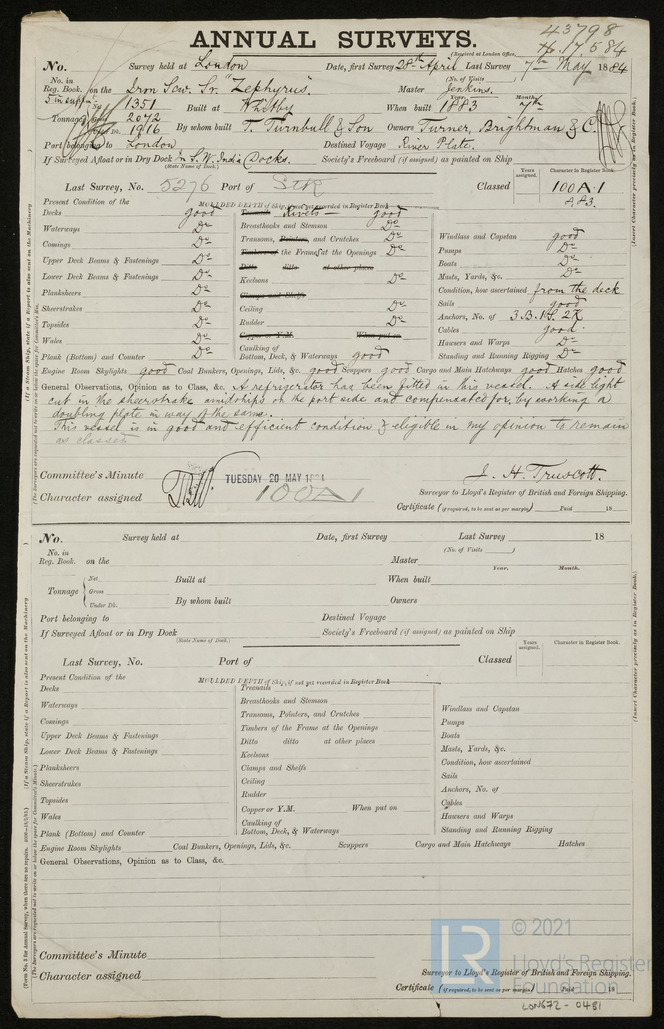 43798
ANNUAL SURVEYS.
(Received at London Office, 17, 5 84
No. Survey held at London Date, first Survey 28th April Last Survey 7th May 1884
(No. of Visits )
No. in Reg. Book. on the Iron Scw. Sr. "Zephyrus". Master Jenkins.
5 in suppt
Year. Month.
Tonnage Net 1351 Built at Whitby When built 1883 7th
Gross 2072
Under Dk. 1916 By whom built T. Turnbull & Son Owners Turner, Brightman & Co.
Port belonging to London Destined Voyage River Plate.
If Surveyed Afloat or in Dry Dock In S.W. India Docks. Society's Freeboard (if assigned) as painted on Ship
(State Name of Dock.)
Years assigned. Character in Register Book.
Last Survey, No. 5276 Port of Stk Classed 100A.1
8,83.
Present Condition of the MOULDED DEPTH of Ship, if not yet recorded in Register Book
Decks good
Waterways Do
Comings Do
Upper Deck Beams & Fastenings Do
Lower Deck Beams & Fastenings Do
Planksheers Do
Sheerstrakes Do
Topsides Do
Wales Do
Plank (Bottom) and Counter Do
Treenails Rivets — good
Breasthooks and Stemson Do
Transoms, Pointers, and Crutches Do
Timbers of the Frame at the Openings Do
Ditto ditto at other places
Keelsons Do
Clamps and Shelfs
Ceiling Do
Rudder Do
Copper or Y.M. When put on
Caulking of Bottom, Deck, & Waterways good
Windlass and Capstan good
Pumps Do
Boats Do
Masts, Yards, &c. Do
Condition, how ascertained from the deck
Sails good
Anchors, No. of 3.B. 1S. 2K
Cables good.
Hawsers and Warps Do
Standing and Running Rigging Do
Engine Room Skylights good Coal Bunkers, Openings, Lids, &c. good Scuppers good Cargo and Main Hatchways good Hatches good
General Observations, Opinion as to Class, &c. A refrigerator has been fitted in this vessel. A side light
cut in the sheerstrake amidships on the port side and compensated for, by working a
doubling plate in way of the same.
This vessel is in good and efficient condition & eligible in my opinion to remain
as classed
Committee's Minute TUESDAY 20 MAY 1884 J. H. Truscott.
Character assigned 100A1 Surveyor to Lloyd's Register of British and Foreign Shipping.
Certificate (if required, to be sent as per margin) Paid 18
No. Survey held at Date, first Survey Last Survey 18
(No. of Visits )
No. in Reg. Book. on the Master
Year. Month.
Tonnage Net Built at When built
Gross
Under Dk. By whom built Owners
Port belonging to Destined Voyage
If Surveyed Afloat or in Dry Dock Society's Freeboard (if assigned) as painted on Ship
(State Name of Dock.)
Years assigned. Character in Register Book.
Last Survey, No. Port of Classed
Present Condition of the MOULDED DEPTH of Ship, if not yet recorded in Register Book
Decks
Waterways
Comings
Upper Deck Beams & Fastenings
Lower Deck Beams & Fastenings
Planksheers
Sheerstrakes
Topsides
Wales
Plank (Bottom) and Counter
Treenails
Breasthooks and Stemson
Transoms, Pointers, and Crutches
Timbers of the Frame at the Openings
Ditto ditto at other places
Keelsons
Clamps and Shelfs
Ceiling
Rudder
Copper or Y.M. When put on
Caulking of Bottom, Deck, & Waterways
Windlass and Capstan
Pumps
Boats
Masts, Yards, &c.
Condition, how ascertained
Sails
Anchors, No. of
Cables
Hawsers and Warps
Standing and Running Rigging
Engine Room Skylights Coal Bunkers, Openings, Lids, &c. Scuppers Cargo and Main Hatchways Hatches
General Observations, Opinion as to Class, &c.
Committee's Minute
Character assigned Surveyor to Lloyd's Register of British and Foreign Shipping.
Certificate (if required, to be sent as per margin) Paid 18
(Insert Character precisely as in Register Book.)
(Insert Character precisely as in Register Book.)
© 2021
Lloyd's Register
Foundation
LON672 - 0481